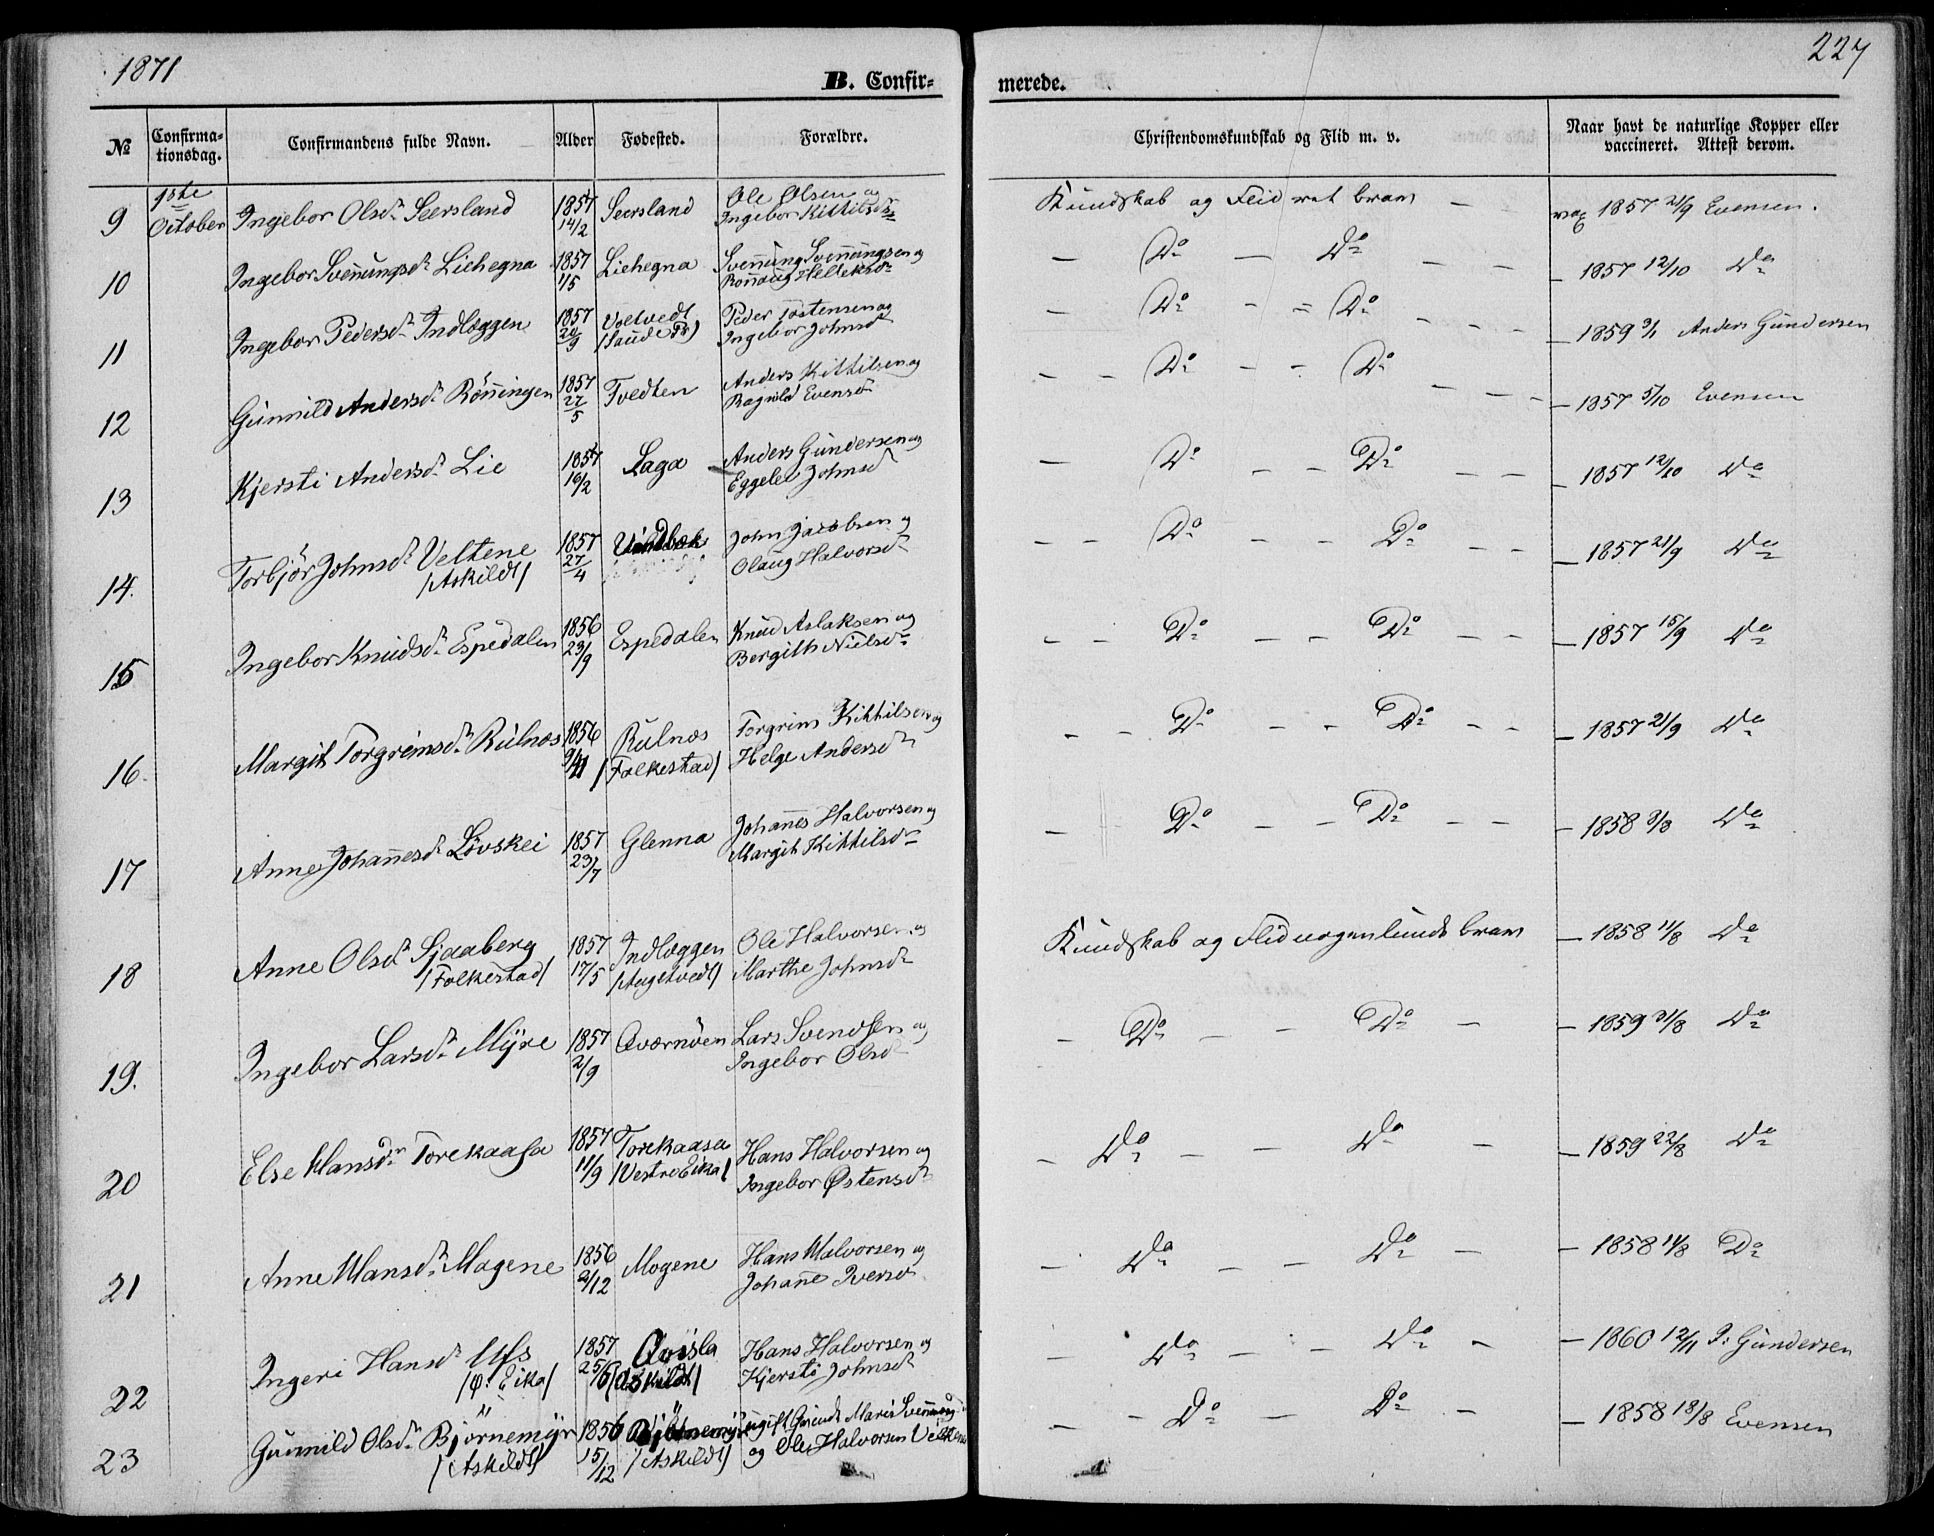 1871
227
B. Confir-
merede.
№
Confirma-
tionsdag.
Confirmandens fulde Navn.
Alder
Fødested.
Forældre.
Christendomskundskab og Flid m. v.
Naar havt de naturlige Kopper eller
vaccineret. Attest derom.
9 1ste October Ingebor Olsdr Seersland 1857 14/2 Seersland Ole Olsen og Ingebor Kittilsdr Kundskab og Flid ret bram vac 1857 21/9 Evensen.
10 Ingebor Svennungsdr Liehegna 1857 1/5 Liehegna Svennung Svennungsen og Rønnaug Helleksdr — Do — Do — — 1857 12/10 Do
11 Ingebor Pedersdr Indlæggen 1857 20/9 Voltvedt /Saude Pr/ Peder Tostensen og Ingebor Johnsdr — Do — Do — 1859 3/1 Anders Gundersen
12 Gunnild Andersdr Rønningen 1857 22/5 Tvedten Anders Kittilsen og Ragnild Evensdr — — Do — Do — — 1857 5/10 Evensen
13 Kjersti Andersdr Lie 1857 16/2 Laga Anders Gundersen og Eggelev Johnsd — Do — — Do — — 1857 12/10 Do
14. Torbjør Johnsdr Veltene /Askildt/ 1857 27/4 Vindbæk John Jacobsen og Olaug Halvorsdr — — Do — — Do — — 1857 21/9 Do
15 Ingebor Knudsdr Espedalen 1856 23/9 Espedalen Knud Aslaksen og Bergith Nielsdr — — Do — — Do — — 1857 15/9 Do
16. Margit Torgrimsdr Rulnæs 1856 9/11 Rulnæs /Folkestad/ Torgrim Kittilsen og Helge Andersdr — — Do — — Do — — 1857 21/9 Do
17 Anne Johannesdr Løvskei 1857 23/7 Glenna Johannes Halvorsen og Margit Kittilsdr — — Do — — Do — — 1858 3/8 Do
18 Anne Olsdr Sjaaberg /Folkestad/ 1857 17/5 Indlæggen /Augetvedt/ Ole Halvorsen og Marthe Johnsdr Kundskab og Flid nogenlunde bram — 1858 11/8 Do
19. Ingebor Larsdr Myre 1857 2/9 Qværnøen Lars Svendsen og Ingebor Olsd — Do — — Do — 1859 31/8 Do
20 Else Hansdr Torekaasa 1857 11/9 Torekaasa /Vestre Eika/ Hans Halvorsen og Ingebor Østensdr — Do — — Do — — 1859 22/8 Do
21 Anne Hansdr Mogene 1856 2/12 Mogene Hans Halvorsen og Johanne Iversd — Do — — Do — — 1858 11/8 Do
22 Ingeri Hansdr Ufs /Ø. Eika/ 1857 25/6 Qvisla /Askildt/ Hans Halvorsen og Kjersti Johnsdr — Do — — Do — — 1860 12/11 P: Gundersen
23 Gunnild Olsdr Bjørnemyr /Askildt/ 1856 15/12 Bjørnemyr /Askildt/ ugift Maris og Ole Halvorsen — — Do — Do — — 1858 18/8 Evensen